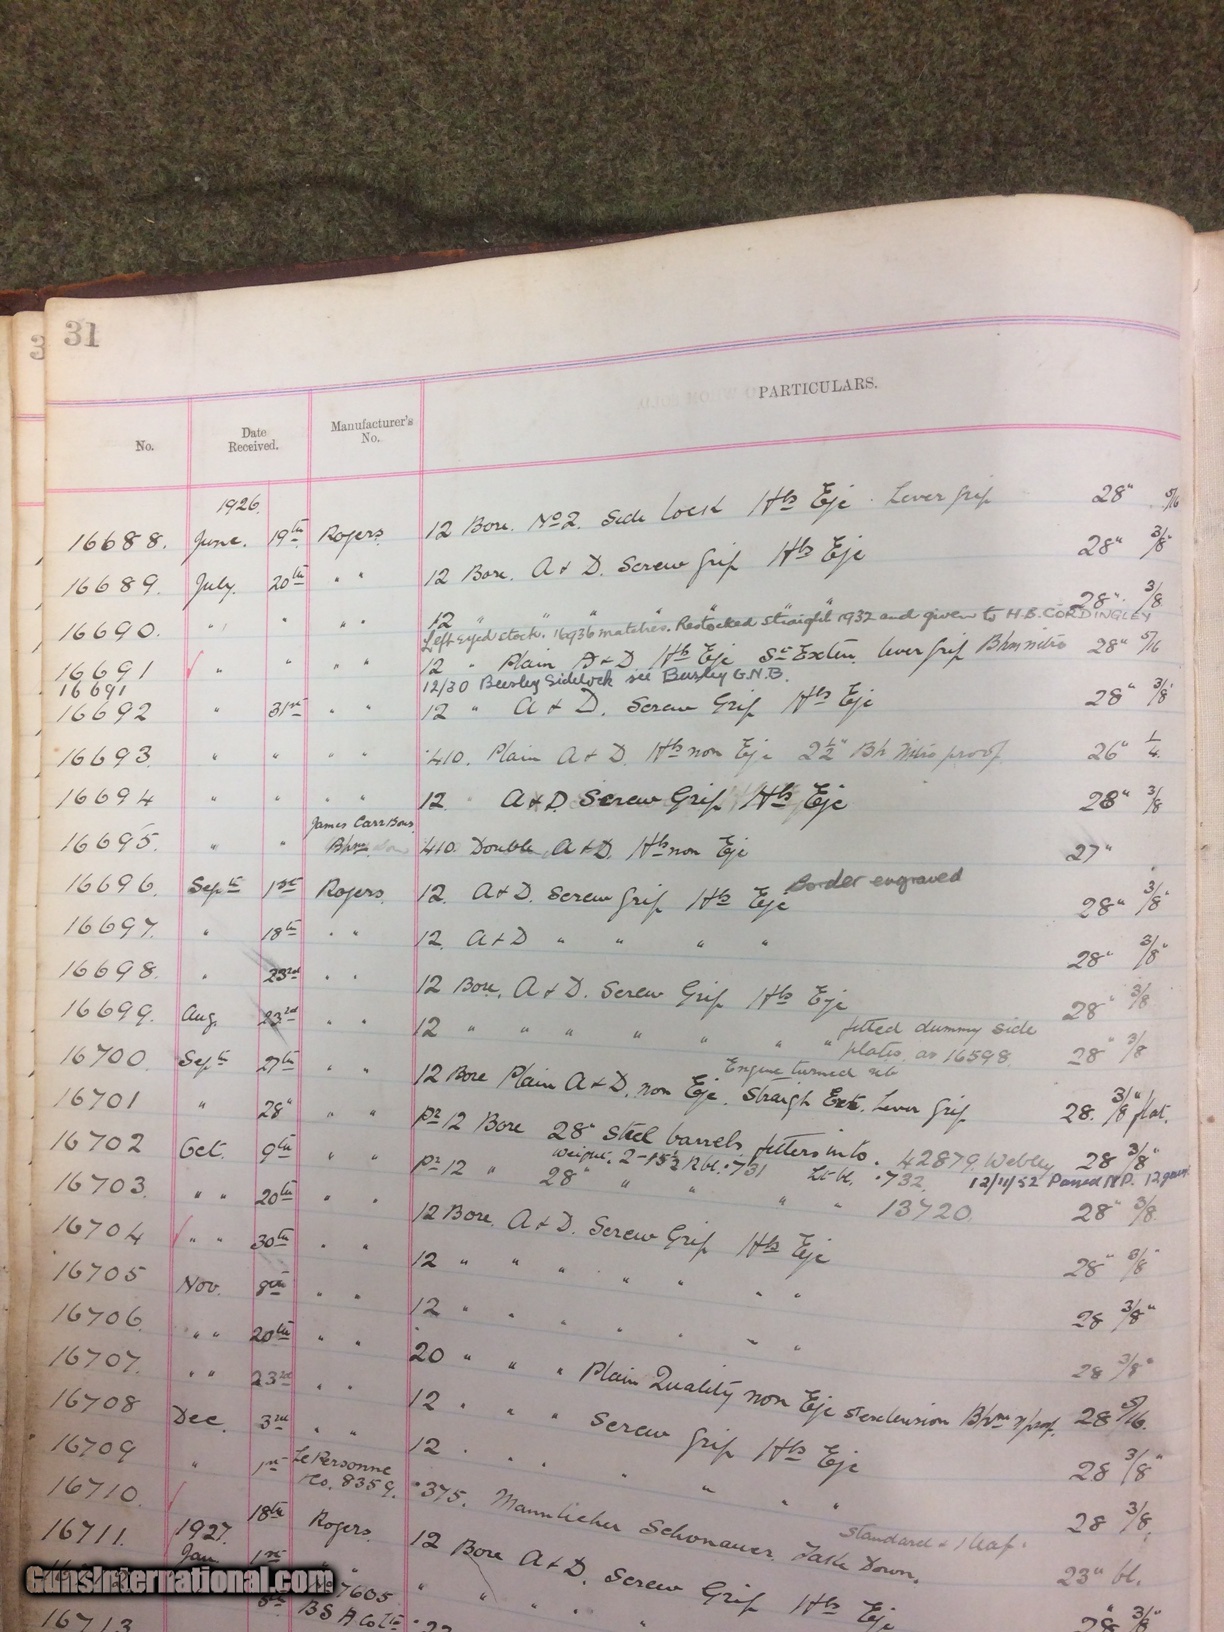 31
PARTICULARS.
No.
Date Received.
Manufacturer's No.
1926.
16688. June. 19th Rogers. 12 Bore. No 2. Side Lock Hls Eje. Lever Grip 28" 5/16
16689. July. 20th " " 12 Bore. A & D. Screw Grip Hls Eje 28" 3/8"
16690. " " " " 12 " " " " " " " 28". 3/8
Left Eyed stock. 16936 matches. Restocked straight 1932 and given to H.B. CORDINGLEY
16691 " " " " 12 " Plain A & D Hls Eje St Exten. lever grip Bhm nitro 28" 5/16
16691 12/30 Beesley Sidelock see Beesley G.N.B.
16692 " 31st " " 12 " A & D. Screw Grip Hls Eje 28" 3/8"
16693. " " " " .410. Plain A & D. Hls non Eje 2½" Bh Nitro proof 26" 1/4
16694 " " " " 12. A & D. Screw Grip Hls Eje 28" 3/8
James Carr & Sons
16695. " " Bhm 410. Double A & D. Hls non Eje 27"
16696. Septr 1st Rogers. 12. A & D. Screw Grip Hls Eje Border engraved 28" 3/8"
16697. " 18th " " 12. A & D " " " " 28" 3/8"
16698. " 23rd " " 12 Bore. A & D. Screw Grip Hls Eje 28" 3/8
16699. Aug. 23rd " " 12 " " " " " " " fitted dummy side
plates, as 16598. 28" 3/8
Engine turned rib
16700. Septr 27th " " 12 Bore Plain A & D. non Eje. Straigh Extn. Lever Grip 28. 3/8" flat.
16701 " 28" " " pr 12 Bore 28" Steel barrels fitters into. 42879 Webley 28 3/8"
Weight. 2-15½ R bl. .731 Lt bl. .732. 12/11/52 Passed N.P. 12 gauge
16702 Oct. 9th " " pr 12 " 28" " " " " 13720. 28" 3/8
16703. " " 20th " " 12 Bore. A & D. Screw Grip Hls Eje 28" 3/8"
16704 " " 30th " " 12 " " " " " " " 28 3/8"
16705 Nov. 8th " " 12 " " " " " " 28 3/8"
16706. " " 20th " " 20 " " " Plain Quality non Eje st extension Bhm N proof. 28 5/16.
16707. " " 23rd " " 12 " " " Screw Grip Hls Eje 28 3/8"
16708 Dec. 3rd " " 12 " " " " " " 28 3/8
16709 " 1st Le Personne & Co. 8359. .375. Mannlicher Schonauer. Take Down. Standard & 1 leaf. 23" bl.
16710. 18th Rogers. 12 Bore A & D. Screw Grip Hls Eje 28 3/8"
16711. 1927. Jan 1st
7605
16713 BSA Co Ltd .22
GunsInternational.com